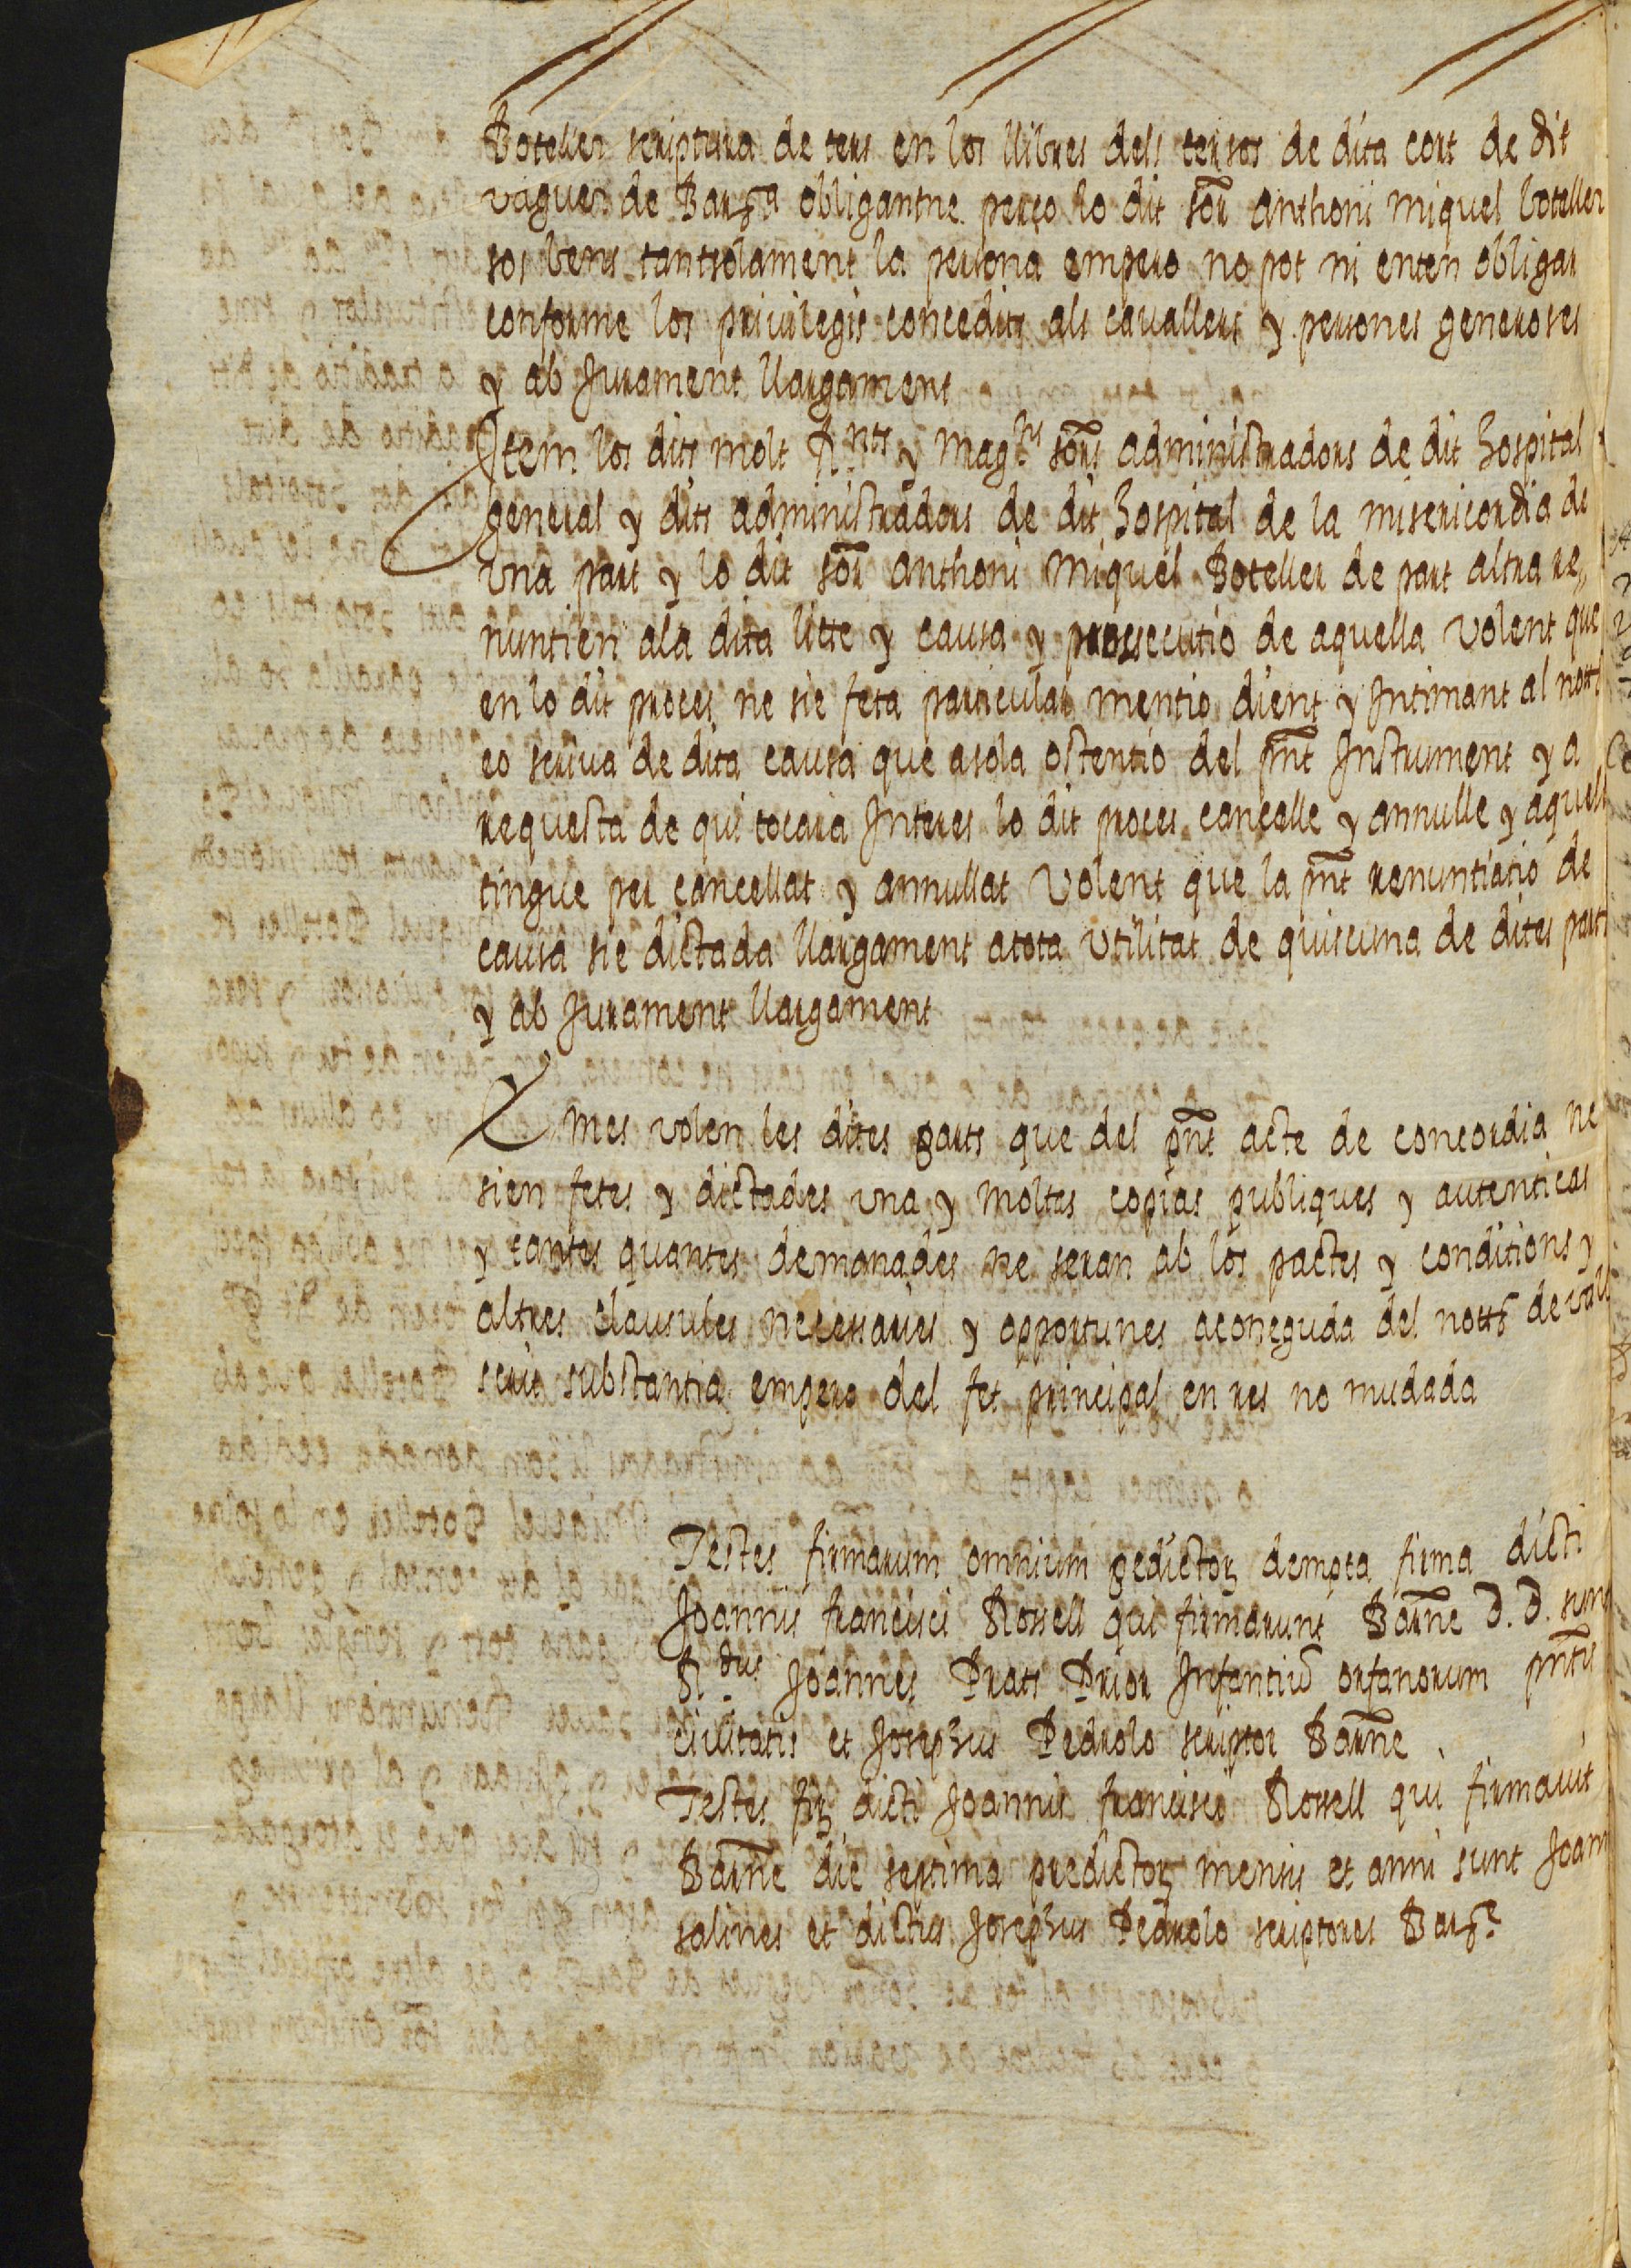 Boteller scriptura de ters en los llibres dels tersos de dita cort de dit
vaguer de Barᵃ obligantne perço lo dit sõr Anthoni Miquel boteller
sos bens tantsolament la persona empero no pot ni enten obligar
conforme los privilegis concedits als cavallers y persones generoses
y ab Jurament llargament
Item los dits molt R.ⁿᵗˢ y Mag.ᶜˢ sõrs administradors de dit hospital
general y dits administradors de dit hospital de la misericordia de
una part y lo dit sõr Anthoni Miquel Boteller de part altra re,,
nuntien ala dita litte y causa y prossecutio de aquella volent que
en lo dit proces ne sie feta particular mentio dient y Intimant al nottᵗ
eo scriva de dita causa que asola ostentio del pñt Instrument y a
requesta de qui tocara Interes lo dit proces cancelle y annulle y aquell
tingue per cancellat y annullat Volent que la pñt renuntiatio de
causa sie dictada llargament atota utilitat de quiscuna de dites parts
y ab Jurament llargament
E mes volen les dites parts que del pñt acte de concordia ne
sien fetes y dictades una y moltes copias publiques y autenticas
y tantes quantes demanades ne seran ab los pactes y conditions y
altres clausules necessaries y opportunes aconeguda del nottᵗ devall
scrit substantia empero del fet principal en res no mudada
Testes firmarum omnium pedictoꝝ dempta firma dicti
Joannis francisci Rossell qui firmarunt Barñe d. d. sunt
R.ᵈᵘˢ Joannes Prats Prior Infantiũ orfanorum pñtis
civitatis et Josephus Pedrolo scriptor Barñe
Testes firꝝ dicti Joannis francisci Rossell qui firmavit
Barñe die septima predictoꝝ mensis et anni sunt Joannes
salines et dictus Josephus Pedrolo scriptores Barᵉ